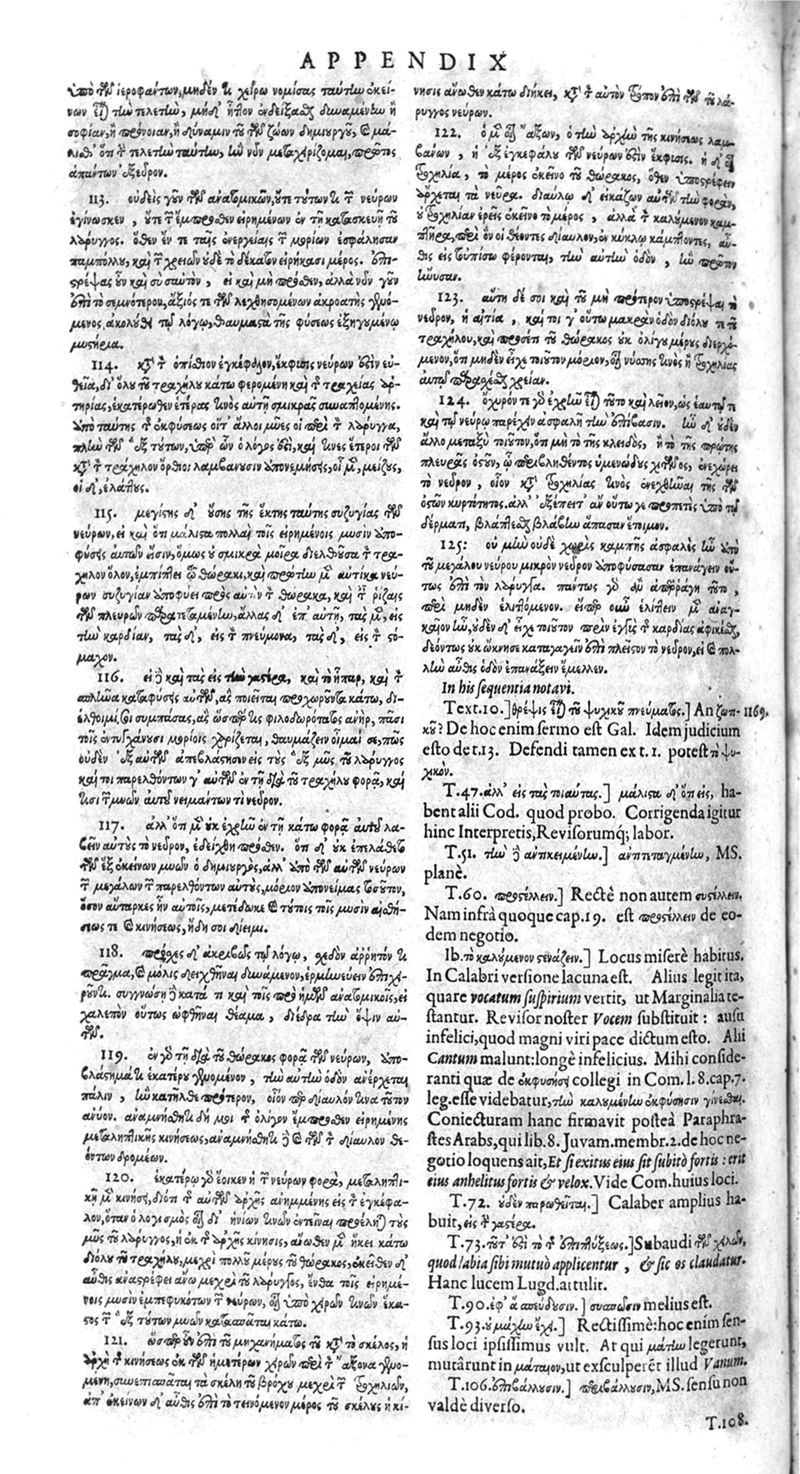 APPENDIX
ὑπὸ τῶν ἱεροφαντῶν, μηδὲν χείρω νομίσας ταύτην ἐκεί-
νων τὴν τελετὴν, μηδ' ἧττον ἐνδείξασθαι δυναμένην ἢ
σοφίαν, ἢ πρόνοιαν, ἢ δύναμιν τοῦ τῶν ζώων δημιουργοῦ, καὶ μά-
τελετὴν ταύτην, ἣν νῦν μεταχειρίζομαι, πρῶτος
ἁπάντων ἐξεῦρον.
113. οὐδεὶς γοῦν τῶν ἀνατομικῶν, οὔτε τούτων τῶν νεύρων
ἐγίνωσκεν, οὔτε τῶν ἔμπροσθεν εἰρημένων ἐν τῇ κατασκευῇ τοῦ
λάρυγγος. ὅθεν ἔν τε ταῖς ἐνεργείαις τῶν μορίων ἐσφάλησαν
παμπόλλου, καὶ τῶν χρειῶν οὐδὲ τὸ δέκατον εἰρήκασι μέρος. ἐπι-
στρέψας οὖν καὶ σὺ σαυτὸν, εἰ καὶ μὴ πρόσθεν, ἀλλὰ νῦν γοῦν
ἐπὶ τὸ σεμνότερον, ἄξιός τε τῶν λεχθησομένων ἀκροατὴς γενό-
μενος, ἀκολούθει τῷ λόγῳ, θαυμαστὰ τῆς φύσεως ἐξηγουμένῳ
μυστήρια.
114. κατὰ τὸν ὀπίσθιον ἐγκέφαλον, ἔκφυσις νεύρων ἐστὶν εὐ-
θεῖα, δι' ὅλου τοῦ τραχήλου κάτω φερομένη παρὰ τὰς τραχείας ἀρ-
τηρίας, ἑκατέρωθεν ἑτέρας τινὸς αὐτῇ σμικρᾶς συναπτομένης.
ὑπὸ ταύτης τῆς ἐκφύσεως οἵτ' ἄλλοι μύες οἱ περὶ τὸν λάρυγγα,
πλὴν τῶν ἓξ τούτων, ὑπὲρ ὧν ὁ λόγος ἐστὶ, καί τινες ἕτεροι τῶν
κατὰ τὸν τράχηλον ὄρθιοι λαμβάνουσιν ὑπονεμήσεις, οἱ μὲν, μείζους,
οἱ δ', ἐλάττους.
115. μεγίστης δ' οὔσης τῆς ἕκτης ταύτης συζυγίας τῶν
νεύρων, εἰ καὶ ὅτι μάλιστα πολλαὶ τοῖς εἰρημένοις μυσὶν ἀπο-
φύσεις αὐτῶν εἶσιν, ὅμως οὐ σμικρὰ μοῖρα διελθοῦσα τὸν τρά-
χηλον ὅλον, ἐμπίπτει τῷ θώρακι, καὶ πρώτην μὲν αὐτίκα νεύ-
ρων συζυγίαν ἀποφύει πρὸς αὐτὸν τὸν θώρακα, παρὰ τὰς ῥίζας
τῶν πλευρῶν παρατεταμένην, ἄλλας δ' ἐπ' αὐτῇ, τὰς μὲν, εἰς
τὴν καρδίαν, τὰς δ', εἰς τὸν πνεύμονα, τὰς δ', εἰς τὸν στό-
μαχον.
116. εἰ δὲ καὶ τὰς εἰς τὴν γαστέρα, καὶ τὸ ἧπαρ, καὶ τὸν
σπλῆνα καταφύσεις αὐτῶν, ἃς ποιεῖται προχωροῦντα κάτω, δι-
έλθοιμί σοι συμπάσας, ἃς ὥσπερ τις φιλοδωρότατος ἀνὴρ, πᾶσι
τοῖς ἐντυγχάνουσι μορίοις χαρίζεται, θαυμάζειν οἶμαί σε, πῶς
οὐδὲν ἐξ αὐτῶν ἀπεβλάστησεν εἰς τοὺς ἓξ μῦς τοῦ λάρυγγος
καίτοι παρελθόντων γ' αὐτῶν ἐν τῇ διὰ τοῦ τραχήλου φορᾷ, καί
τισι τῶν μυῶν αὐτοῦ νειμάντων τι νεῦρον.
117. ἀλλ' ὅτι μὲν οὐκ ἐχρῆν ἐν τῇ κάτω φορᾷ αὐτοὺς λα-
βεῖν αὐτοὺς τὸ νεῦρον, ἐδείχθη πρόσθεν. ὅτι δ' οὐκ ἐπελάθετο
τῶν ἓξ ἐκείνων μυῶν ὁ δημιουργὸς, ἀλλ' ἀπὸ τῶν αὐτῶν νεύρων
τῶν μεγάλων τῶν παρελθόντων αὐτοὺς, μόριον ἀπονείμας τοσοῦτον,
ὅσον αὔταρκες ἦν αὐτοῖς, μετέδωκε καὶ τούτοις τοῖς μυσὶν αἰσθή-
σεώς τε καὶ κινήσεως, ἤδη σοι δίειμι.
118. πρόσχες δ' ἀκριβῶς τῷ λόγῳ, σχεδὸν ἄρρητόν τι
πρᾶγμα, καὶ μόλις δειχθῆναι δυνάμενον, ἑρμηνεύειν ἐπιχει-
ροῦντι. συγγνώσῃ δὲ κατά τι καὶ τοῖς πρὸ ἡμῶν ἀνατομικοῖς, εἰ
χαλεπὸν οὕτως ὀφθῆναι θέαμα, διέδρα τὴν ὄψιν αὐ-
τῶν.
119. ἐν γὰρ τῇ διὰ τοῦ θώρακος φορᾷ τῶν νεύρων, ἀπο-
βλάστημα ἑκατέρου γενόμενον, τὴν αὐτὴν ὁδὸν ἀνέρχεται
πάλιν, ἣν κατῆλθε πρότερον, οἷον περ δίαυλόν τινα τοῦτον
ἀνύον. ἀναμνήσθητι δή μοι τῆς ὀλίγον ἔμπροσθεν εἰρημένης
μεταληπτικῆς κινήσεως, ἀναμνήσθητι δὲ καὶ τῶν δίαυλον θε-
όντων δρομέων.
120. ἑκατέρῳ γὰρ ἔοικεν ἡ τῶν νεύρων φορὰ, μεταληπτι-
κῇ μὲν κινήσει, διότι τῆς αὐτῶν ἀρχῆς ἀνημμένης εἰς τὸν ἐγκέφα-
λον, ὅταν ὁ λογισμὸς οἷον δι' ἡνίων τινῶν ἐντεῖναι προέληται τοὺς
μῦς τοῦ λάρυγγος, ἡ ἐκ τῆς ἀρχῆς κίνησις, ἄνωθεν μὲν ἥκει κάτω
δι' ὅλου τοῦ τραχήλου, μέχρι πολλοῦ μέρους τοῦ θώρακος, ἐκεῖθεν δ'
αὖθις ἀναστρέφει ἄνω μέχρι τοῦ λάρυγγος, ἔνθα τοῖς εἰρημέ-
νοις μυσὶν ἐμπεφυκότων τῶν νεύρων, οἷον ὑπὸ χειρῶν τινων ἕκα-
στος τῶν ἓξ τούτων μυῶν κατασπᾶται κάτω.
121. ὥσπερ οὖν ἐπὶ τοῦ μηχανήματος τοῦ κατὰ τὸ σκέλος, ἡ
ἀρχὴ τῆς κινήσεως ἐκ τῶν ἡμετέρων χειρῶν περὶ τὸν ἄξονα γενο-
μένη, συνεπισπᾶται τὰ σκέλη τοῦ βρόχου μέχρι τῶν τροχιλιῶν,
ἀπ' ἐκείνων δ' αὖθις ἐπὶ τὸ τεινόμενον μέρος τοῦ σκέλους ἡ κί-
νησις ἄνωθεν κάτω διήκει, κατὰ τὸν αὐτὸν τρόπον ἐπὶ τῶν τοῦ λά-
ρυγγος νεύρων.
122. ὁ μὲν οἷον ἄξων, ὁ τὴν ἀρχὴν τῆς κινήσεως λαμ-
βάνων, ἡ ἐξ ἐγκεφάλου τῶν νεύρων ἐστὶν ἔκφυσις. ἡ δ' οἷον
τροχιλία, τὸ μέρος ἐκεῖνο τοῦ θώρακος, ὅθεν ὑποστρέφειν
ἄρχεται τὰ νεῦρα. διαύλῳ δ' εἰκάζων αὐτῶν τὴν φορὰν,
οὐ τροχιλίαν ἐρεῖς ἐκεῖνο τὸ μέρος, ἀλλὰ τὸν καλούμενον καμ-
πτῆρα, περὶ ὃν οἱ θέοντες δίαυλον, ἐν κύκλῳ κάμπτοντες, αὖ-
θις εἰς τοὐπίσω φέρονται, τὴν αὐτὴν ὁδὸν, ἣν πρῶτον
ἤνυσαν.
123. αὕτη δέ σοι καὶ τοῦ μὴ πρότερον ὑποστρέψαι τὸ
νεῦρον, ἡ αἰτία, καί τοι γ' οὕτω μακρὰν ὁδὸν δι' ὅλου τε τοῦ
τραχήλου, καὶ προσέτι τοῦ θώρακος οὐκ ὀλίγου μέρους διερχό-
μενον, ὅτι μηδὲν εἶχε τοιοῦτον μόριον, οἷον νύσσης τινὸς ἢ τροχιλίας
αὐτῷ παρασχεῖν χρείαν.
124. ὀχυρόν τε γὰρ ἐχρῆν εἶναι τοῦτο καὶ λεῖον, ὡς ἑαυτῷ τε
καὶ τῷ νεύρῳ παρέχειν ἀσφαλῆ τὴν ἐπίβασιν. ἦν δ' οὐδὲν
ἄλλο μεταξὺ τοιοῦτον, ὅτι μὴ τὸ τῆς κλειδὸς, ἢ τὸ τῆς πρώτης
πλευρᾶς ὀστοῦν, ᾧ περιβληθέντος ὑμενώδους χιτῶνος, ἐνεχώρει
τὸ νεῦρον, οἷον κατὰ τροχιλίας τινὸς ἐνεχθῆναι τῆς τῶν
ὀστῶν κυρτότητος. ἀλλ' ἐξέπιπτ' ἂν οὕτω γε προπετὲς ὑπὸ τῷ
δέρματι, βλάπτεσθαι βλάβην ἅπασαν ἕτοιμον.
125: οὐ μὴν οὐδὲ χωρὶς καμπῆς ἀσφαλὲς ἦν ἀπὸ
τοῦ μεγάλου νεύρου μικρὸν νεῦρον ἀποφύσασαν ἐπανάγειν εὐ-
θὺς ἐπὶ τὸν λάρυγγα. πάντως γὰρ ἂν ἀπερράγη τοῦτο,
περὶ μηδὲν ἑλιττόμενον. εἴπερ οὖν ἑλίττειν μὲν ἀναγ-
καῖον ἦν, οὐδὲν δ' εἶχε τοιοῦτον πρὶν ἐγγὺς τῆς καρδίας ἀφικέσθαι,
δεόντως οὐκ ὤκνησε καταγαγεῖν ἐπὶ πλεῖστον τὸ νεῦρον, εἰ καὶ πολ-
λὴν αὖθις ὁδὸν ἐπανάξειν ἔμελλεν.
In his sequentia notavi.
Text.10.] θρέψις τοῦ ψυχικοῦ πνεύματος.] An ζωτι- 1169.
κοῦ? De hoc enim sermo est Gal. Idem judicium
esto de t.13. Defendi tamen ex t.1. potest τὸ ψυ-
χικόν.
T.47. ἀλλ' εἰς τὰς τοιαύτας.] μάλιστα δ' ὅτι εἰς, ha-
bent alii Cod. quod probo. Corrigenda igitur
hinc Interpretis, Revisorumq; labor.
T.51. τὴν ἀντικειμένην.] ἀντιτεταγμένην, MS.
planè.
T.60. προστέλλειν.] Rectè non autem συστέλλειν.
Nam infrà quoque cap.19. est προστέλλειν de eo-
dem negotio.
Ib. τὸ καλούμενον στενάζειν.] Locus miserè habitus.
In Calabri versione lacuna est. Alius legit ita,
quare vocatum suspirium vertit, ut Marginalia te-
stantur. Revisor noster Vocem substituit: ausu
infelici, quod magni viri pace dictum esto. Alii
Cantum malunt: longè infelicius. Mihi conside-
ranti quæ de ἐκφυσήσει collegi in Com. l.8. cap.7.
leg. esse videbatur, τὴν καλουμένην ἐκφύσησιν γίνεσθαι.
Coniecturam hanc firmavit posteà Paraphra-
stes Arabs, qui lib.8. Juvam. membr. 2. de hoc ne-
gotio loquens ait, Et si exitus eius sit subitò fortis: erit
eius anhelitus fortis & velox. Vide Com. huius loci.
T.72. οὐδὲν παρωθεῖται.] Calaber amplius ha-
buit, εἰς τὴν γαστέρα.
T.73. τοῦτ' ἐστὶ τὸ τῆς ἐπιπτύξεως.] Subaudi τῶν χειλῶν,
quod labia sibi mutuò applicentur, & sic os claudatur.
Hanc lucem Lugd. attulit.
T.90. ἐφ' ἃ σπεύδουσιν.] συσπῶσιν melius est.
T.93. οὐ μάχην ἔχει.] Rectissimè: hoc enim sen-
sus loci ipsissimus vult. At qui μάτην legerunt,
mutârunt in μάταιον, ut exsculperẽt illud Vanum.
T.106. ἐπιβάλλουσιν.] περιβάλλουσιν, MS. sensu non
valdè diverso.
T.108.